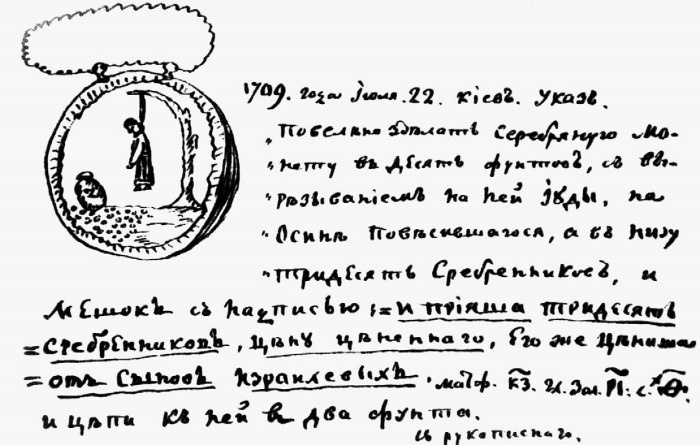 1709. года Іюля. 22. Кіевъ. Указъ.
„Повелѣно здѣлать Серебряную мо-
„нету въ десять фунтовъ, съ вы-
„рѣзываніемъ на ней Іуды, на
„Осинѣ повѣсившагося, а въ низу
„тридесять Сребренниковъ, и
мешокъ съ надписью: = и пріяша тридесять
= сребренниковъ, цѣну цѣненнаго, Его же цѣниша
= отъ Сыновъ израилевыхъ. матф. КЗ.
и цѣпи къ ней въ два фунта.
съ рукописнаго.